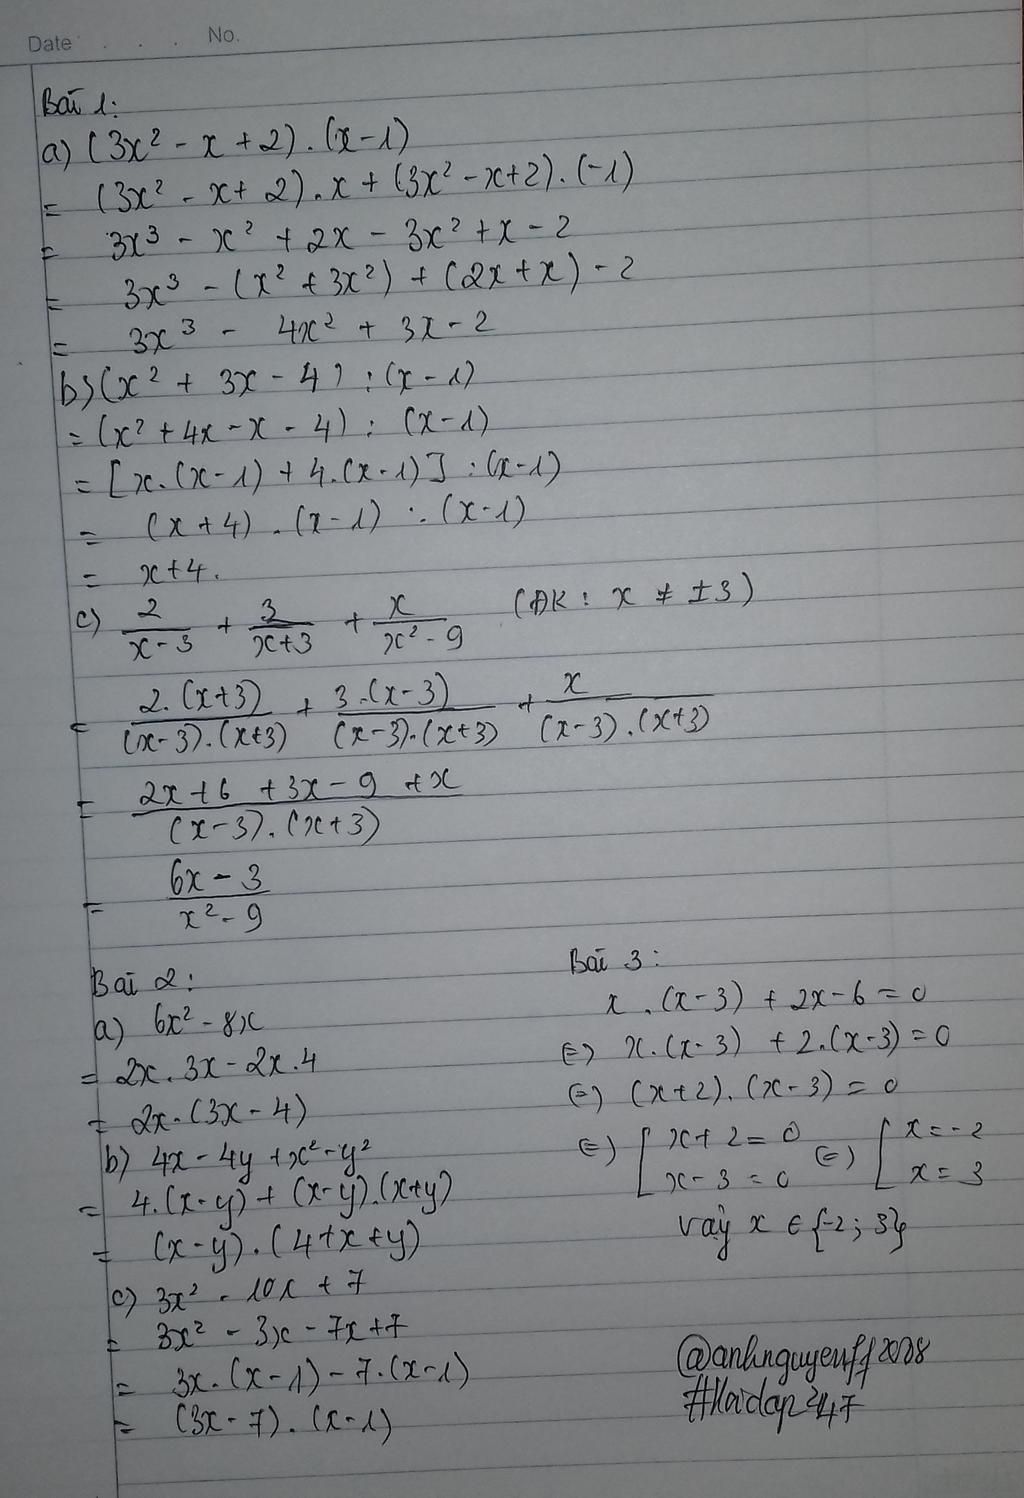 Date . . . No.
Bài 1:
a) (3x² - x + 2) . (x - 1)
= (3x² - x + 2) . x + (3x² - x + 2) . (-1)
= 3x³ - x² + 2x - 3x² + x - 2
= 3x³ - (x² + 3x²) + (2x + x) - 2
= 3x³ - 4x² + 3x - 2
b) (x² + 3x - 4) : (x - 1)
= (x² + 4x - x - 4) : (x - 1)
= [x . (x - 1) + 4 . (x - 1)] : (x - 1)
= (x + 4) . (x - 1) : (x - 1)
= x + 4.
c) 2/(x - 3) + 3/(x + 3) + x/(x² - 9) (ĐK : x ≠ ±3)
= 2.(x + 3)/((x - 3).(x + 3)) + 3.(x - 3)/((x - 3).(x + 3)) + x/((x - 3).(x + 3))
= (2x + 6 + 3x - 9 + x)/((x - 3).(x + 3))
= (6x - 3)/(x² - 9)
Bài 2:
a) 6x² - 8x
= 2x . 3x - 2x . 4
= 2x . (3x - 4)
b) 4x - 4y + x² - y²
= 4.(x - y) + (x - y).(x + y)
= (x - y) . (4 + x + y)
c) 3x² - 10x + 7
= 3x² - 3x - 7x + 7
= 3x . (x - 1) - 7 . (x - 1)
= (3x - 7) . (x - 1)
Bài 3:
x . (x - 3) + 2x - 6 = 0
⇔ x . (x - 3) + 2 . (x - 3) = 0
⇔ (x + 2) . (x - 3) = 0
⇔ [ x + 2 = 0 ⇔ [ x = -2
x - 3 = 0 x = 3
vậy x ∈ {-2; 3}
@anhnguyenff2008
#Hoidap247